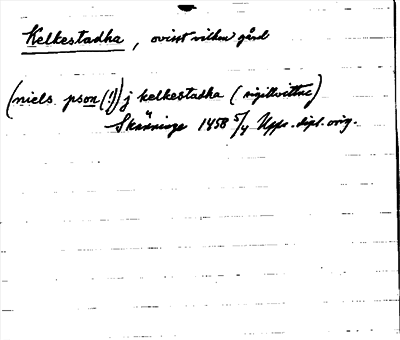 Kelkestadha, ovisst vilken gård
(niels pson (!)) j kelkestadha (sigillvittne)
Skänninge 1458 5/4 Upps. dipl. orig.